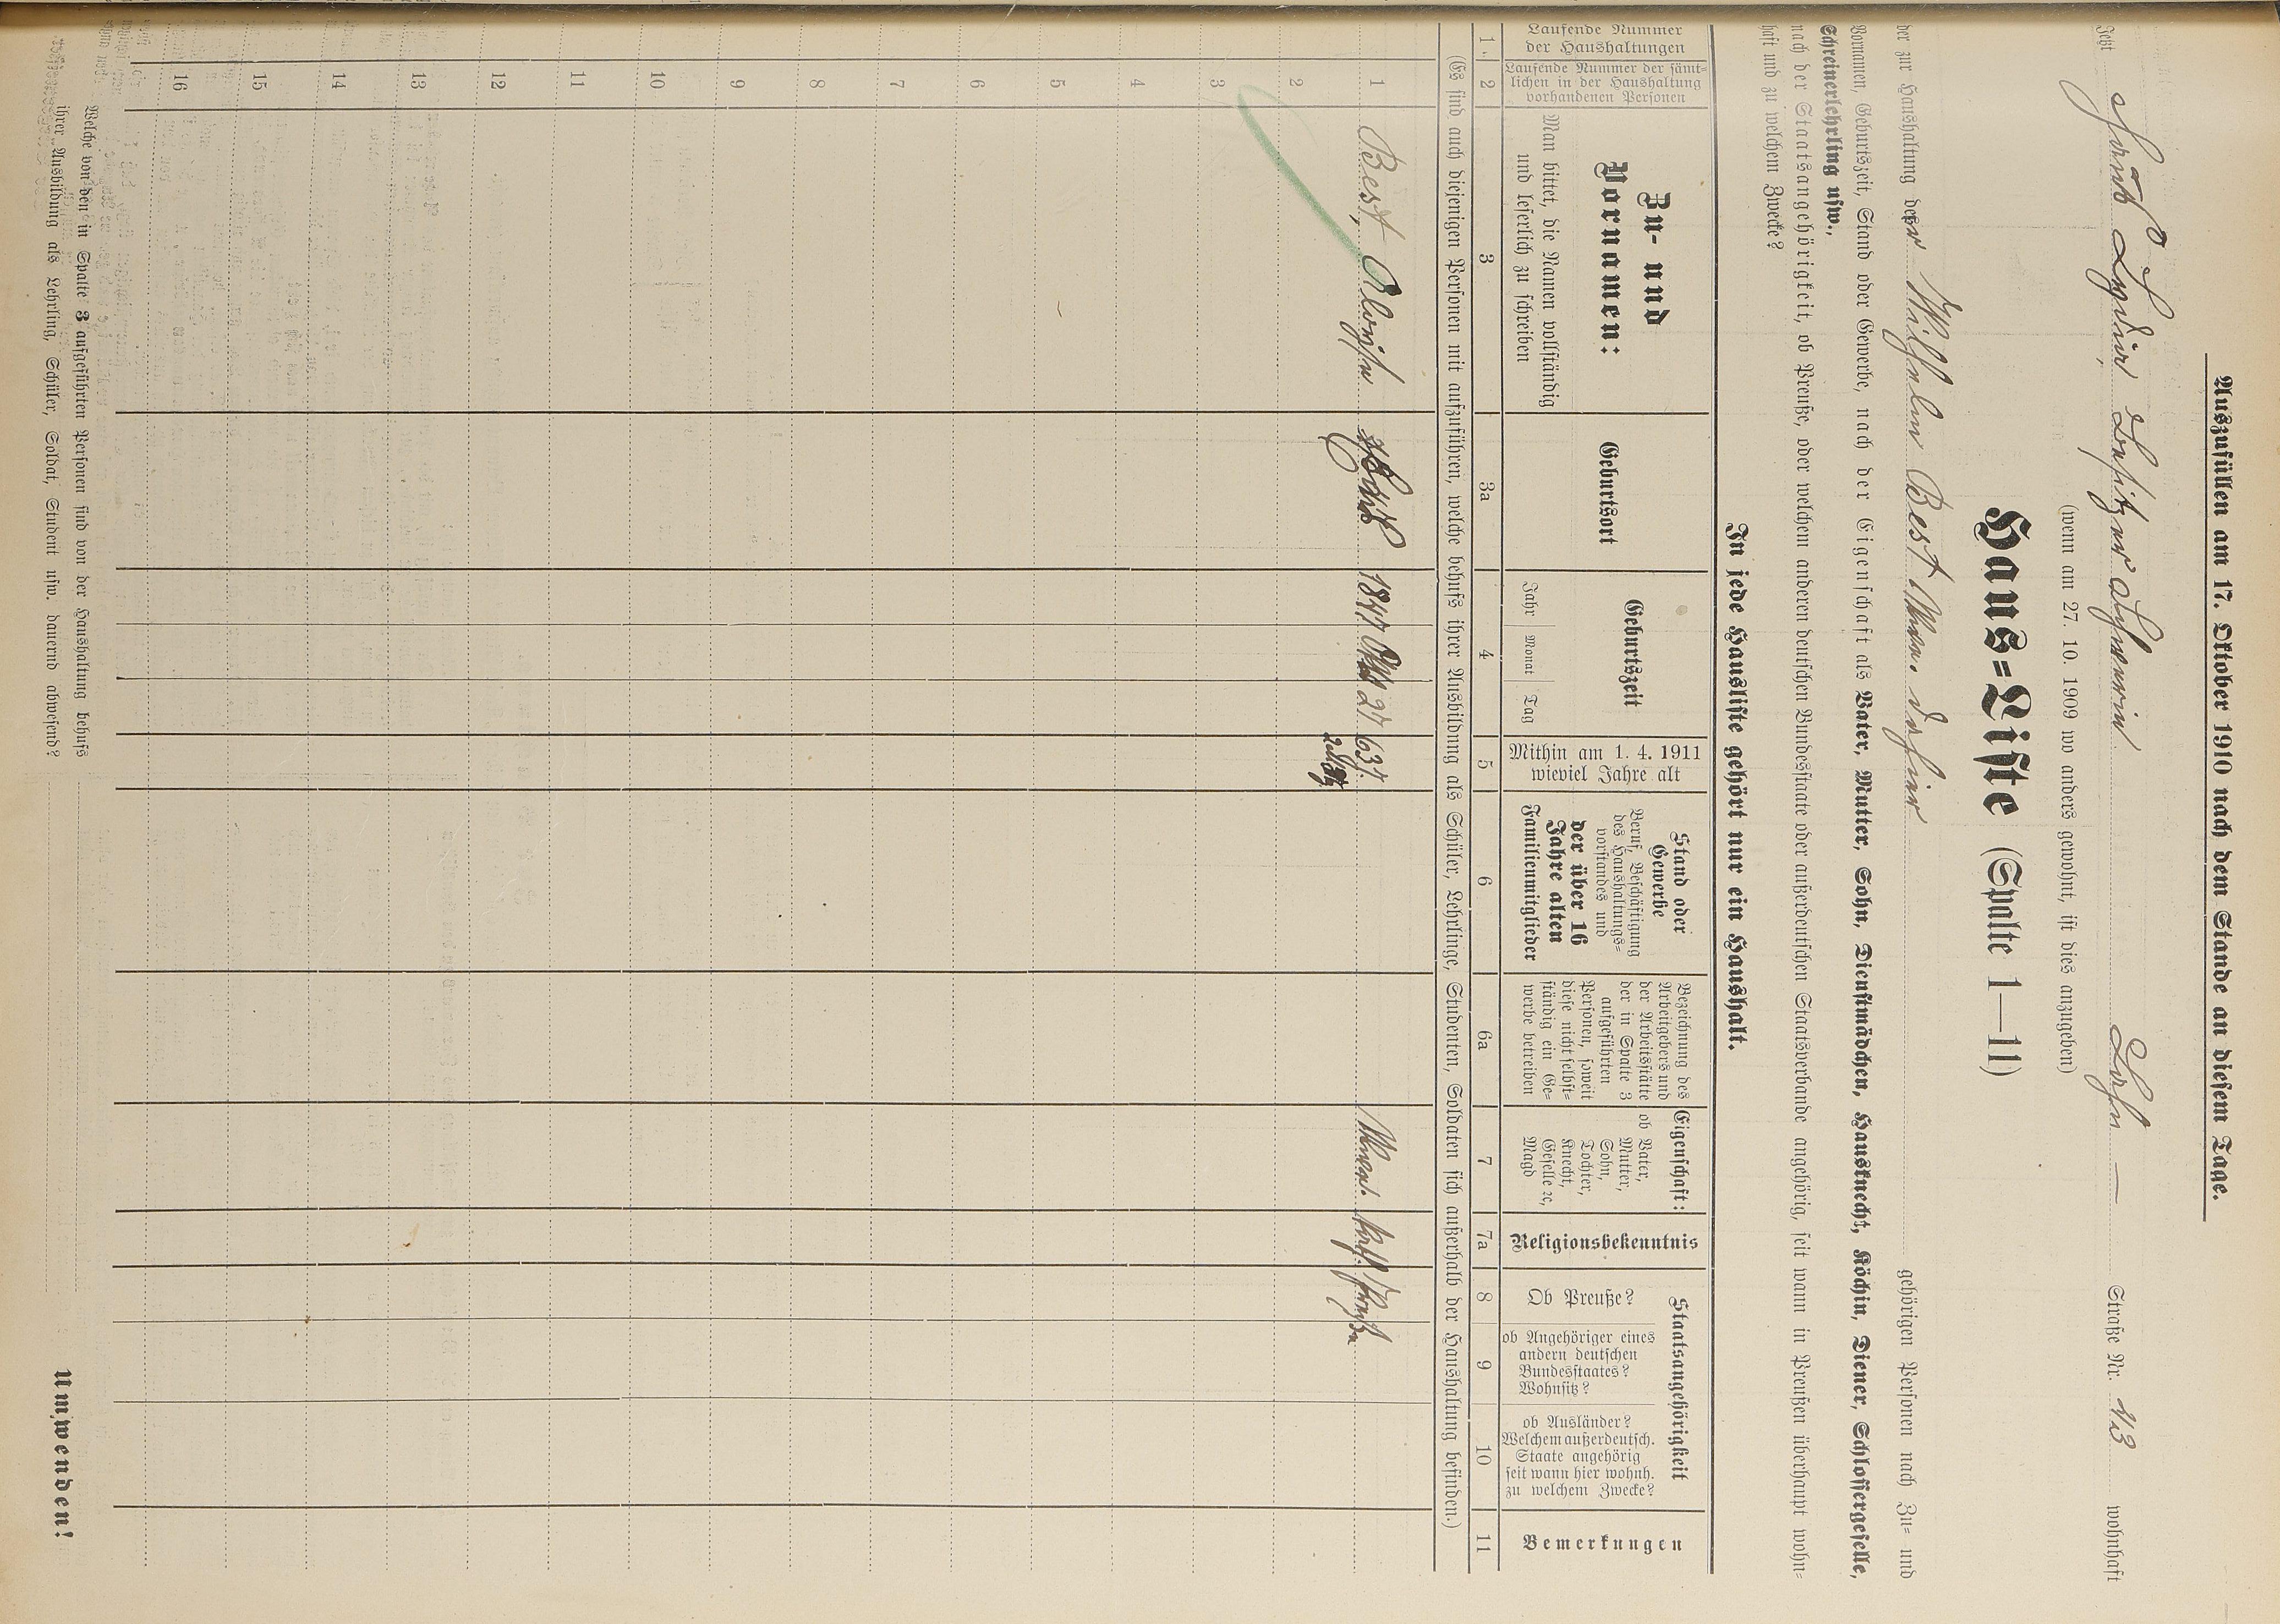 Auszufüllen am 17. Oktober 1910 nach dem Stande an diesem Tage.
Jetzt Straße Nr. 43 wohnhaft
(wenn am 27. 10. 1909 wo anders gewohnt, ist dies anzugeben)
Haus-Liste (Spalte 1—11)
der zur Haushaltung der Wilhelm Best Wwe. dahier gehörigen Personen nach Zu- und
Vornamen, Geburtszeit, Stand oder Gewerbe, nach der Eigenschaft als Vater, Mutter, Sohn, Dienstmädchen, Hausknecht, Köchin, Diener, Schlossergeselle,
Schreinerlehrling usw.,
nach der Staatsangehörigkeit, ob Preuße, oder welchem anderen deutschen Bundesstaate oder außerdeutschen Staatsverbande angehörig, seit wann in Preußen überhaupt wohn-
haft und zu welchem Zwecke?
In jede Hausliste gehört nur ein Haushalt.
Laufende Nummer
der Haushaltungen
Laufende Nummer der sämt-
lichen in der Haushaltung
vorhandenen Personen
Zu- und
Vornamen:
Man bittet, die Namen vollständig
und leserlich zu schreiben
Geburtsort
Geburtszeit
Jahr Monat Tag
Mithin am 1. 4. 1911
wieviel Jahre alt
Stand oder
Gewerbe
Beruf, Beschäftigung
des Haushaltungs-
vorstandes und
der über 16
Jahre alten
Familienmitglieder
Bezeichnung des
Arbeitgebers und
der Arbeitsstätte
der in Spalte 3
aufgeführten
Personen, soweit
diese nicht selbst-
ständig ein Ge-
werbe betreiben
Eigenschaft:
ob Vater,
Mutter,
Sohn,
Tochter,
Knecht,
Geselle ec,
Magd
Religionsbekenntnis
Staatsangehörigkeit
Ob Preuße?
ob Angehöriger eines
andern deutschen
Bundesstaates?
Wohnsitz?
ob Ausländer?
Welchem außerdeutsch.
Staate angehörig
seit wann hier wohnh.
zu welchem Zwecke?
Bemerkungen
1. 2 3 3a 4 5 6 6a 7 7a 8 9 10 11
(Es sind auch diejenigen Personen mit aufzuführen, welche behufs ihrer Ausbildung als Schüler, Lehrlinge, Studenten, Soldaten sich außerhalb der Haushaltung befinden.)
1 Best, 1847 Okt 27 63 Wwe. kath. Preuße
2
3
4
5
6
7
8
9
10
11
12
13
14
15
16
Welche von den in Spalte 3 aufgeführten Personen sind von der Haushaltung behufs
ihrer Ausbildung als Lehrling, Schüler, Soldat, Student usw. dauernd abwesend?
Umwenden!